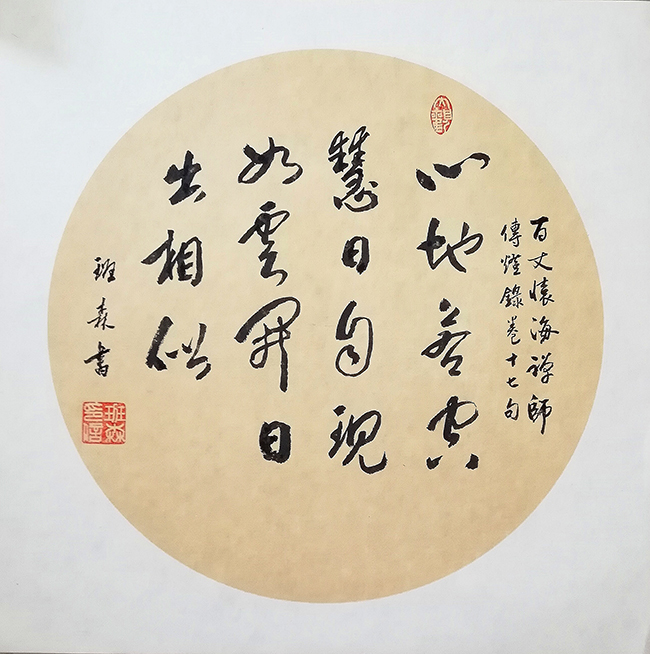 百丈懷海禪師
傳燈錄卷十七句
心地若空
慧日自現
如雲開日
出相似
班森書
班森
印信